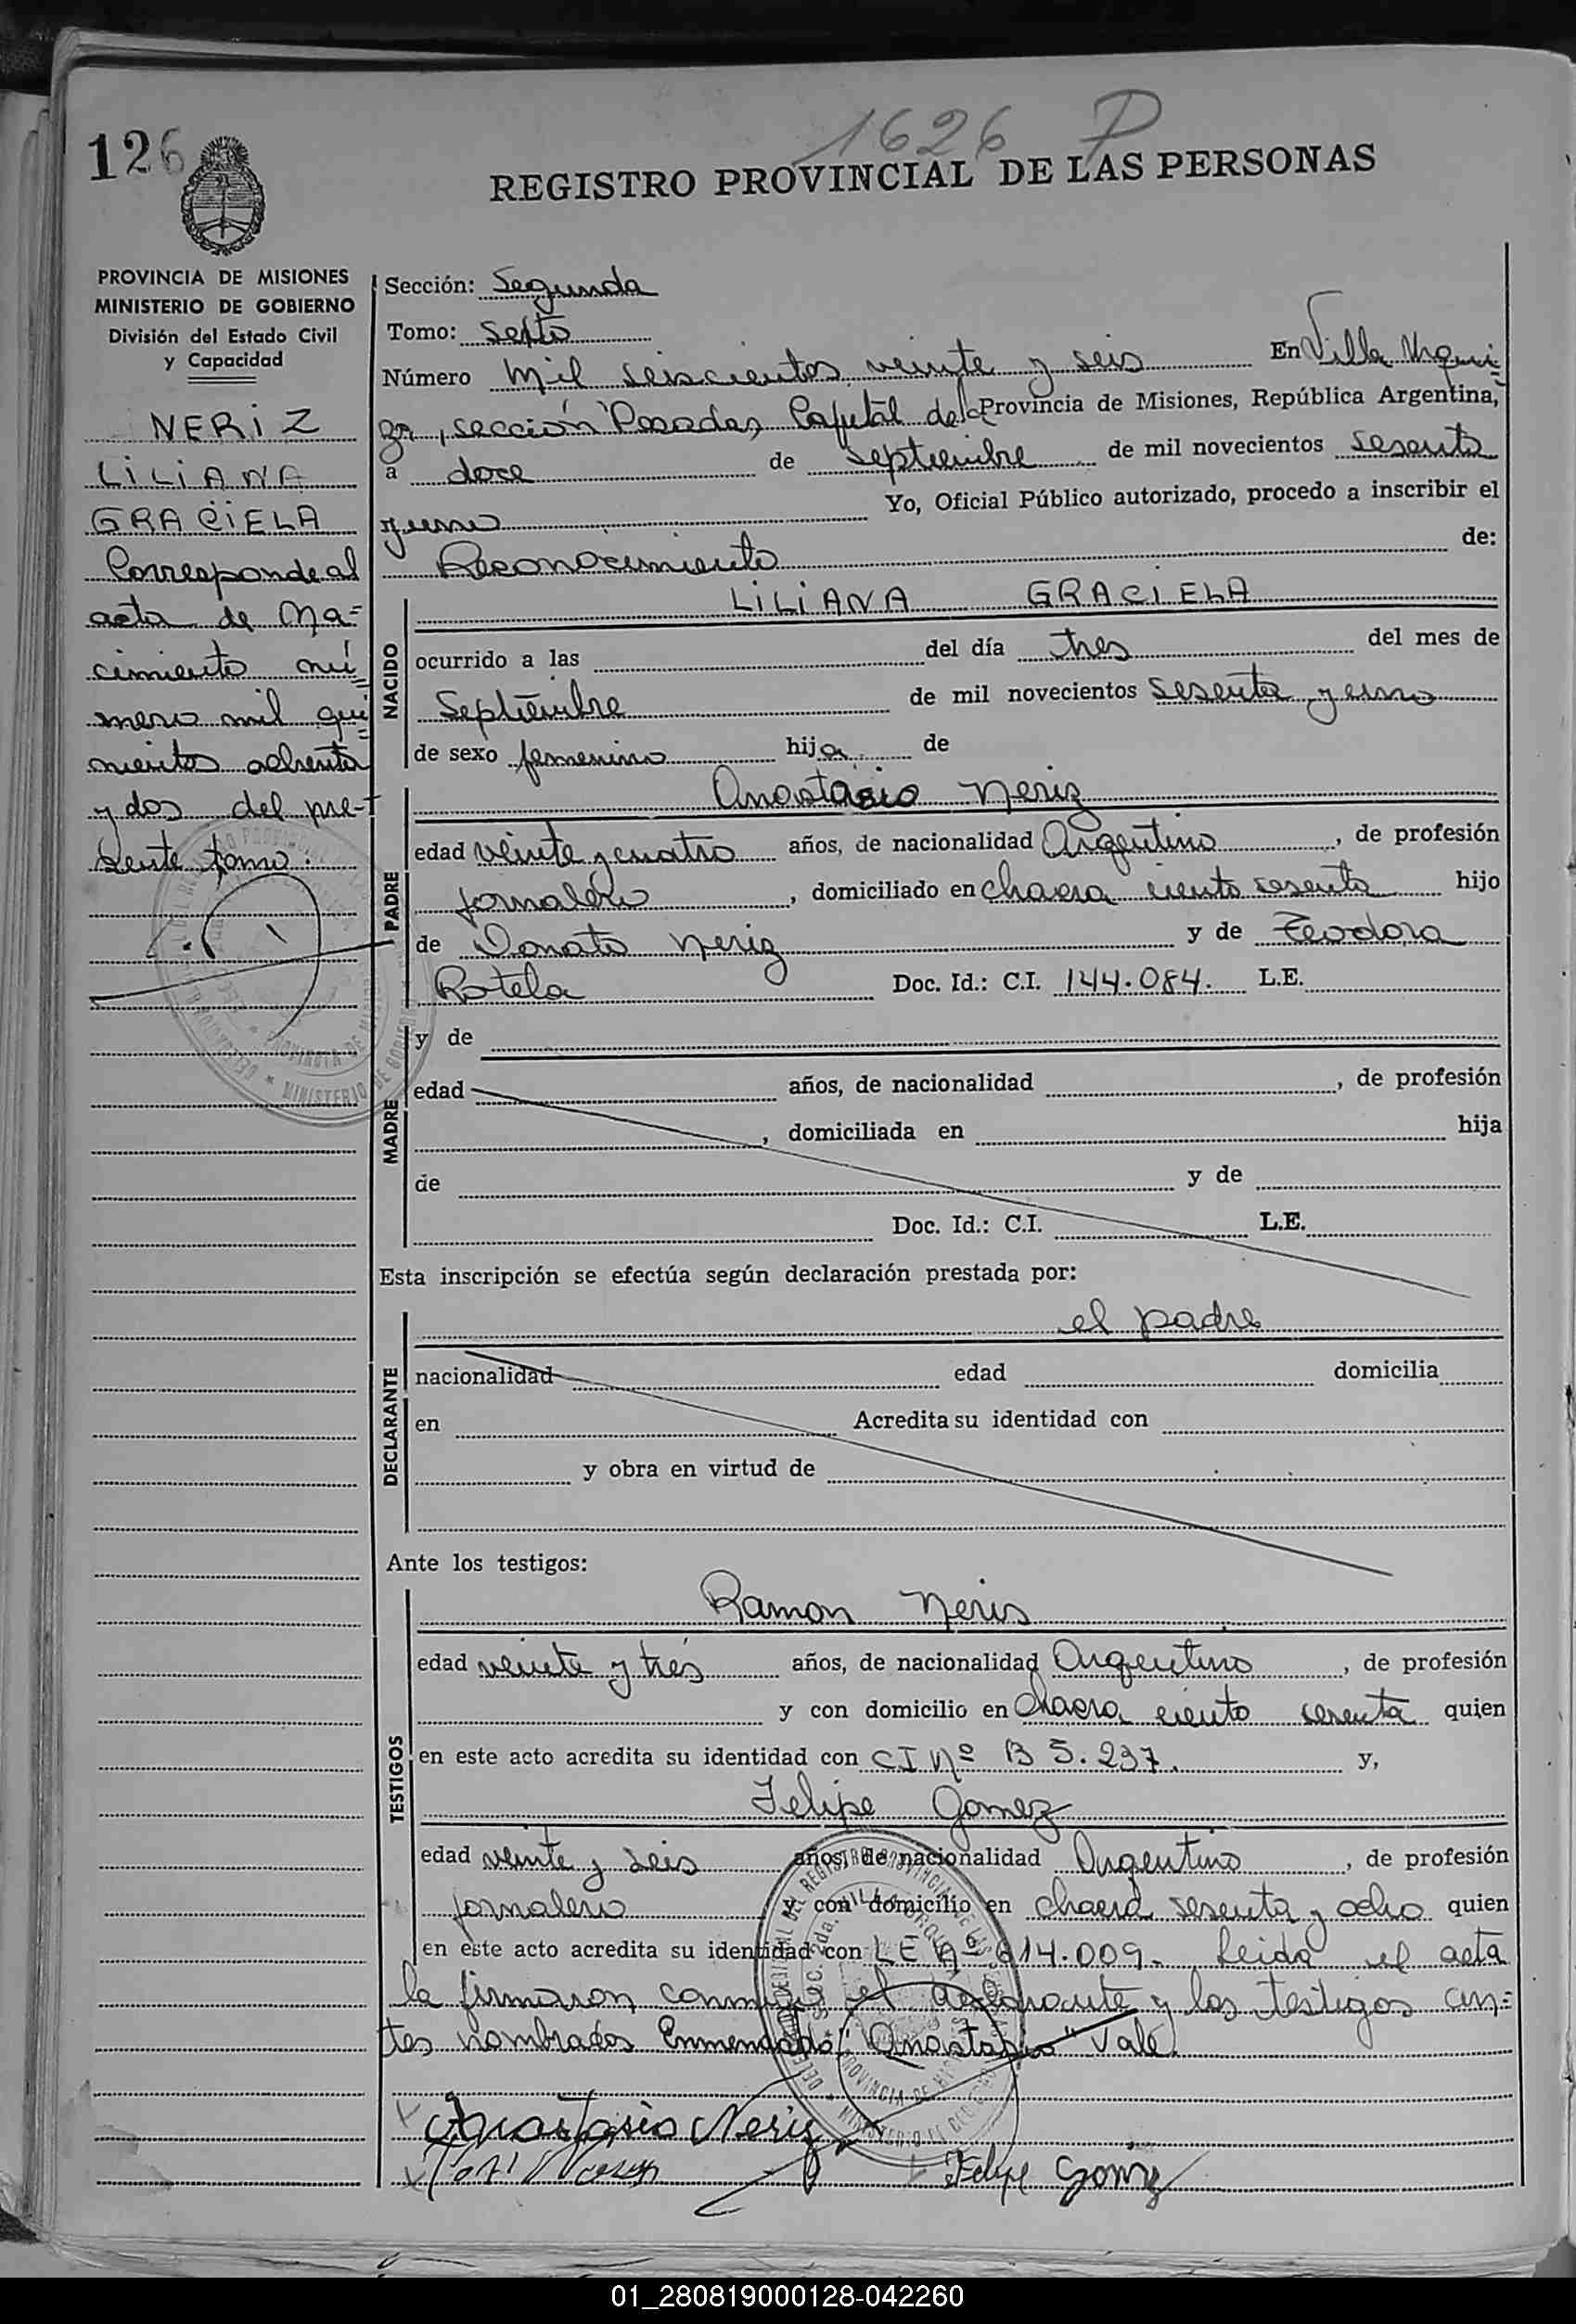 1626 P
126
REGISTRO PROVINCIAL DE LAS PERSONAS
PROVINCIA DE MISIONES
MINISTERIO DE GOBIERNO
División del Estado Civil
y Capacidad
NERIZ
LILIANA
GRACIELA
Corresponde al
acta de na=
cimiento nú=
mero mil qui=
nientos ochenta
y dos del pre-
sente tomo.
Sección: Segunda
Tomo: Sexto
Número mil seiscientos veinte y seis En Villa Urqui=
za, sección Posadas Capital de la Provincia de Misiones, República Argentina,
a doce de septiembre de mil novecientos sesenta
y uno Yo, Oficial Público autorizado, procedo a inscribir el
Reconocimiento de:
NACIDO
LILIANA GRACIELA
ocurrido a las del día tres del mes de
Septiembre de mil novecientos sesenta y uno
de sexo femenino hija de
PADRE
Anastasio Neriz
edad veinte y cuatro años, de nacionalidad Argentino, de profesión
jornalero, domiciliado en chacra ciento sesenta hijo
de Donato Neriz y de Teodora
Rotela Doc. Id.: C.I. 144.084. L.E.
MADRE
y de
edad años, de nacionalidad , de profesión
, domiciliada en hija
de y de
Doc. Id.: C.I. L.E.
Esta inscripción se efectúa según declaración prestada por:
DECLARANTE
el padre
nacionalidad edad domicilia
en Acredita su identidad con
y obra en virtud de
Ante los testigos:
TESTIGOS
Ramon Neris
edad veinte y tres años, de nacionalidad Argentino, de profesión
y con domicilio en chacra ciento sesenta quien
en este acto acredita su identidad con CI Nº 135.237. y,
Felipe Gomez
edad veinte y seis años, de nacionalidad Argentino, de profesión
jornalero y con domicilio en chacra sesenta y ocho quien
en este acto acredita su identidad con LE Nº 614.009. Leida el acta
la firmaron conmigo el declarante y los testigos an=
tes nombrados Enmendado: "Anastasio" Vale.
Anastasio Neriz
Felipe Gomez
01_280819000128-042260